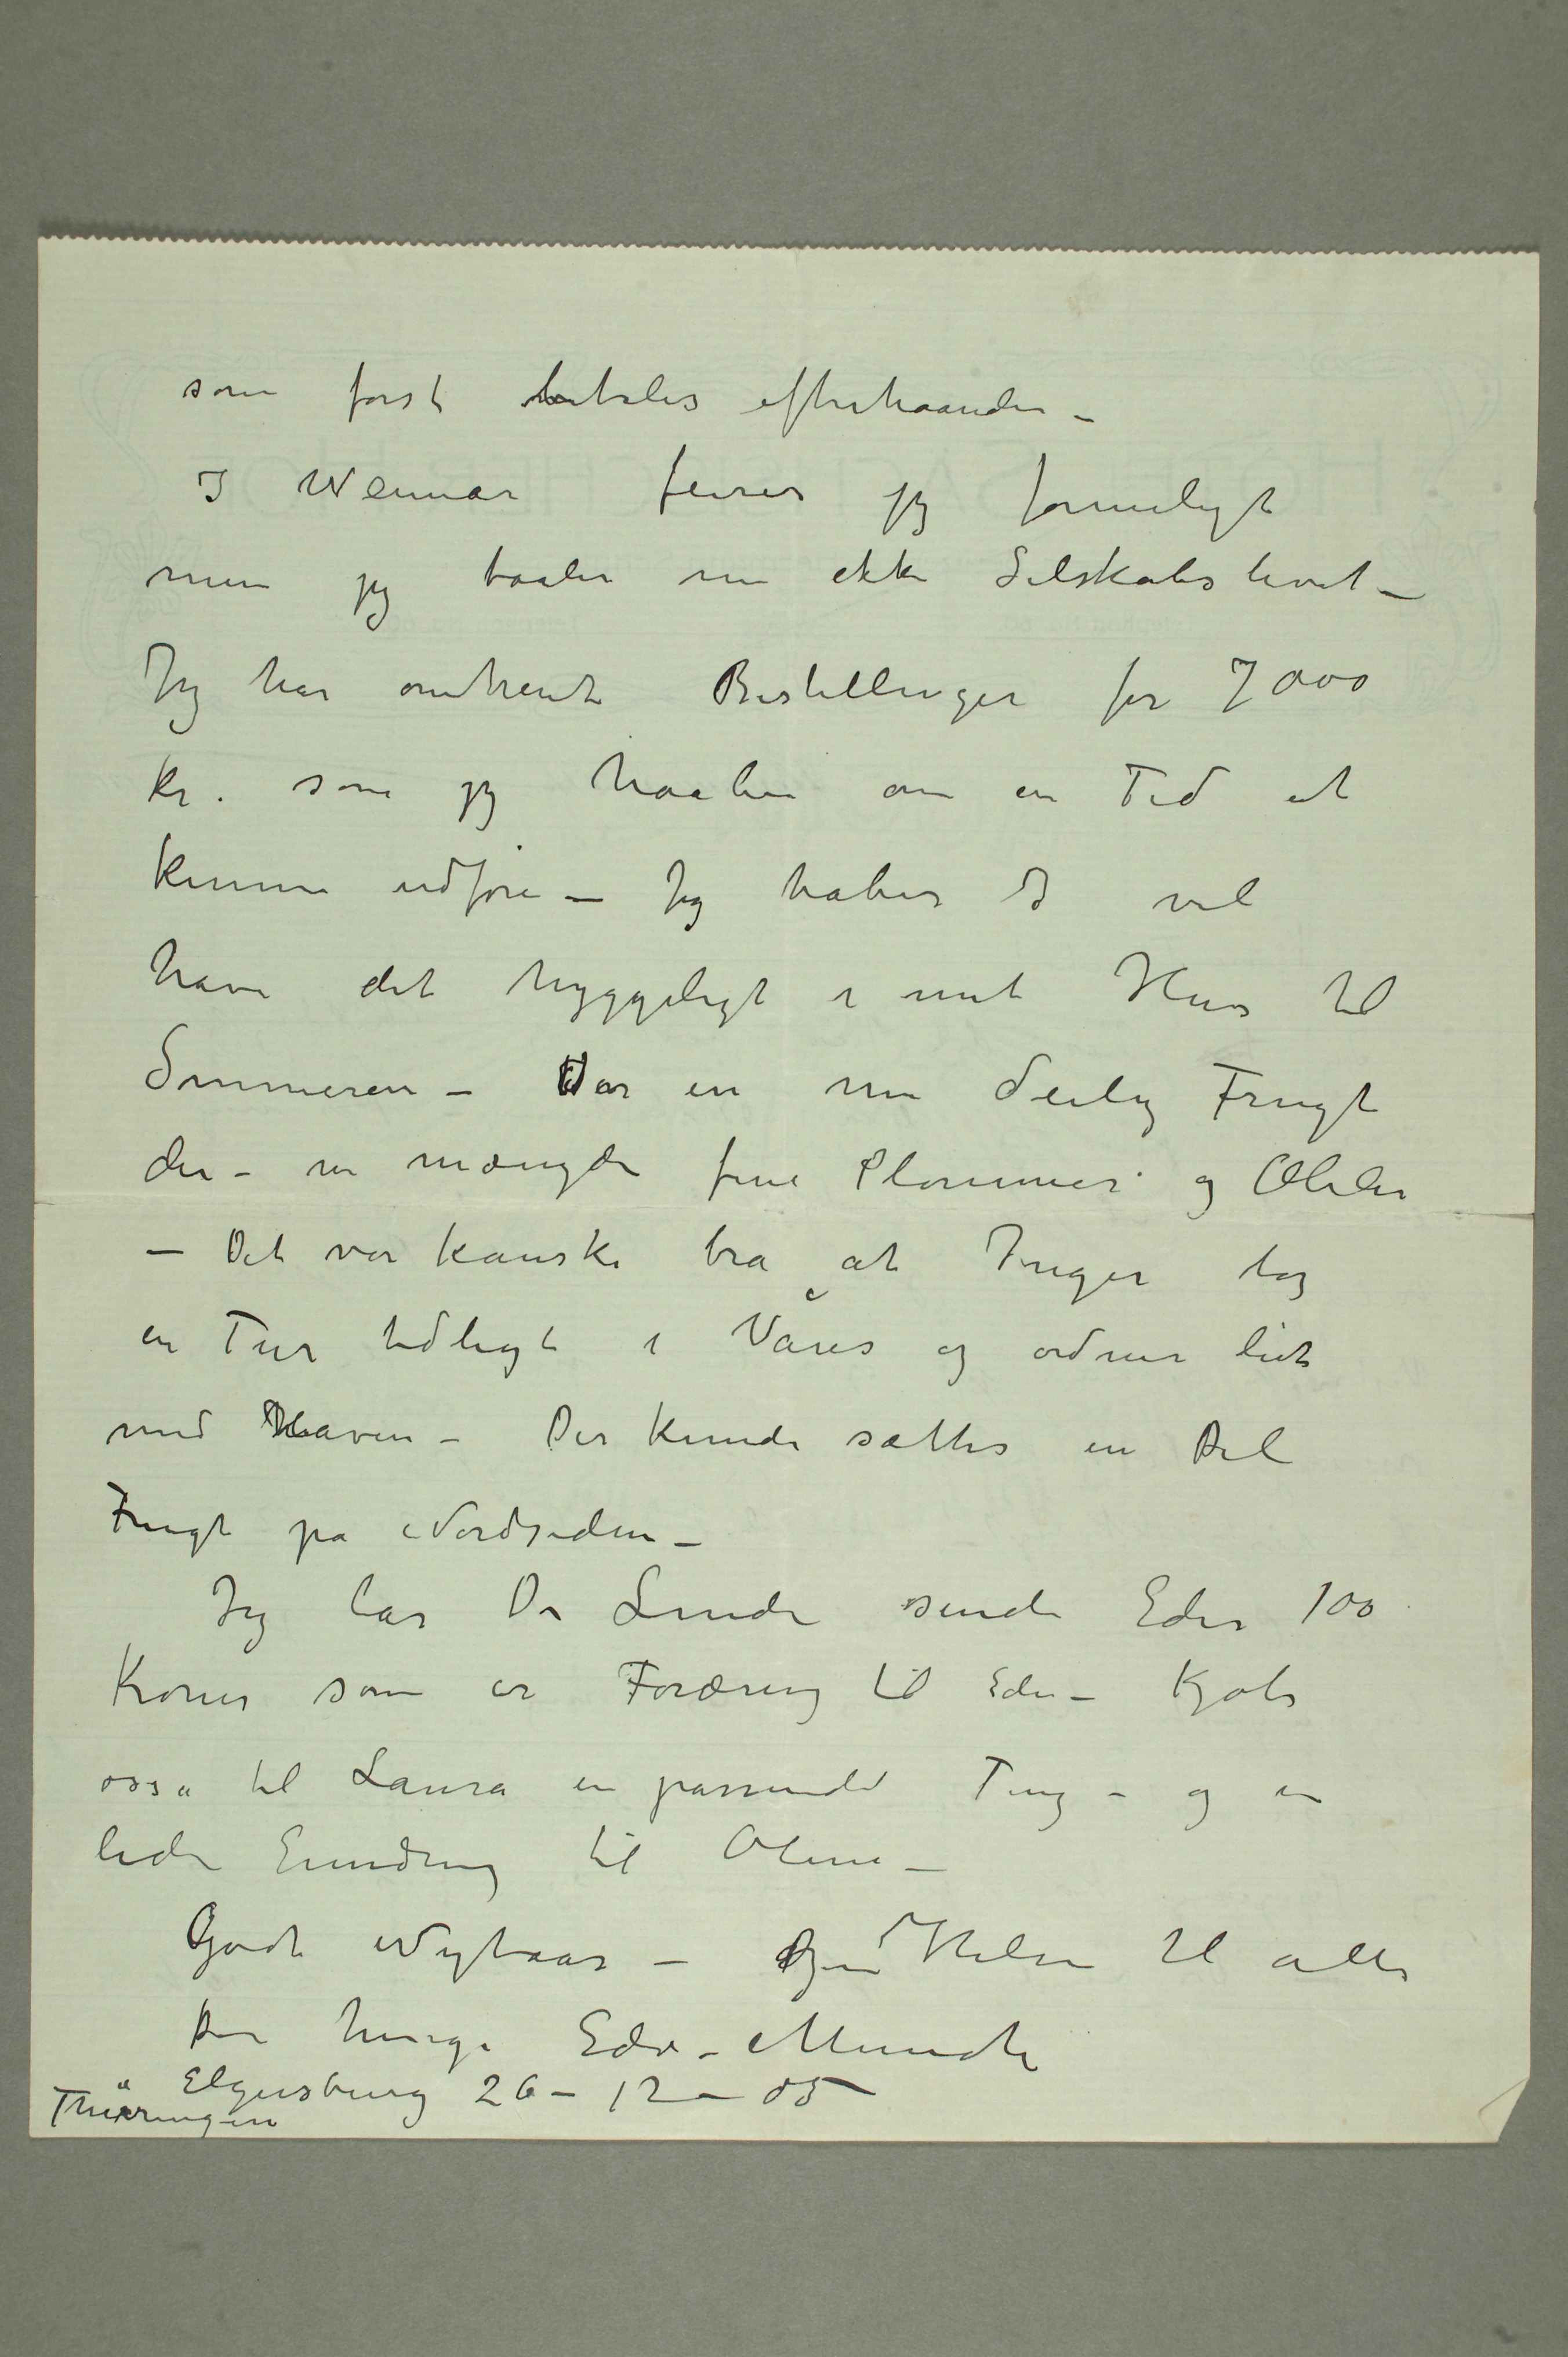 som først betales efterhaanden –
I Weimar feires jeg formeligt
men jeg taaler nu ikke Selskabslivet –
Jeg har omtrent Bestillinger for 7000
kr. som jeg haaber om en Tid at
kunne udføre – Jeg haber I vil
have det hyggeligt i mit Hus til
Sommeren – Der er nu deilig Frugt
der – en mængde fine Plommer og Æbler
– Det var kanske bra at Inger tog
en Tur tidligt i Våres og ordner lidt
med Haven – Der kunde sættes en Del
Frugt på Nordsiden –
Jeg lar Dr Linde sende Eder 100
Kroner som er Foræring til Eder – Kjøb
osså til Laura en passende Ting – og en
liden Erindring til Olene –
Godt Nytaar – Hilsen til alle
Din hengi Edv. Munch
Elgersburg 26 – 12 – 05
Thüringen